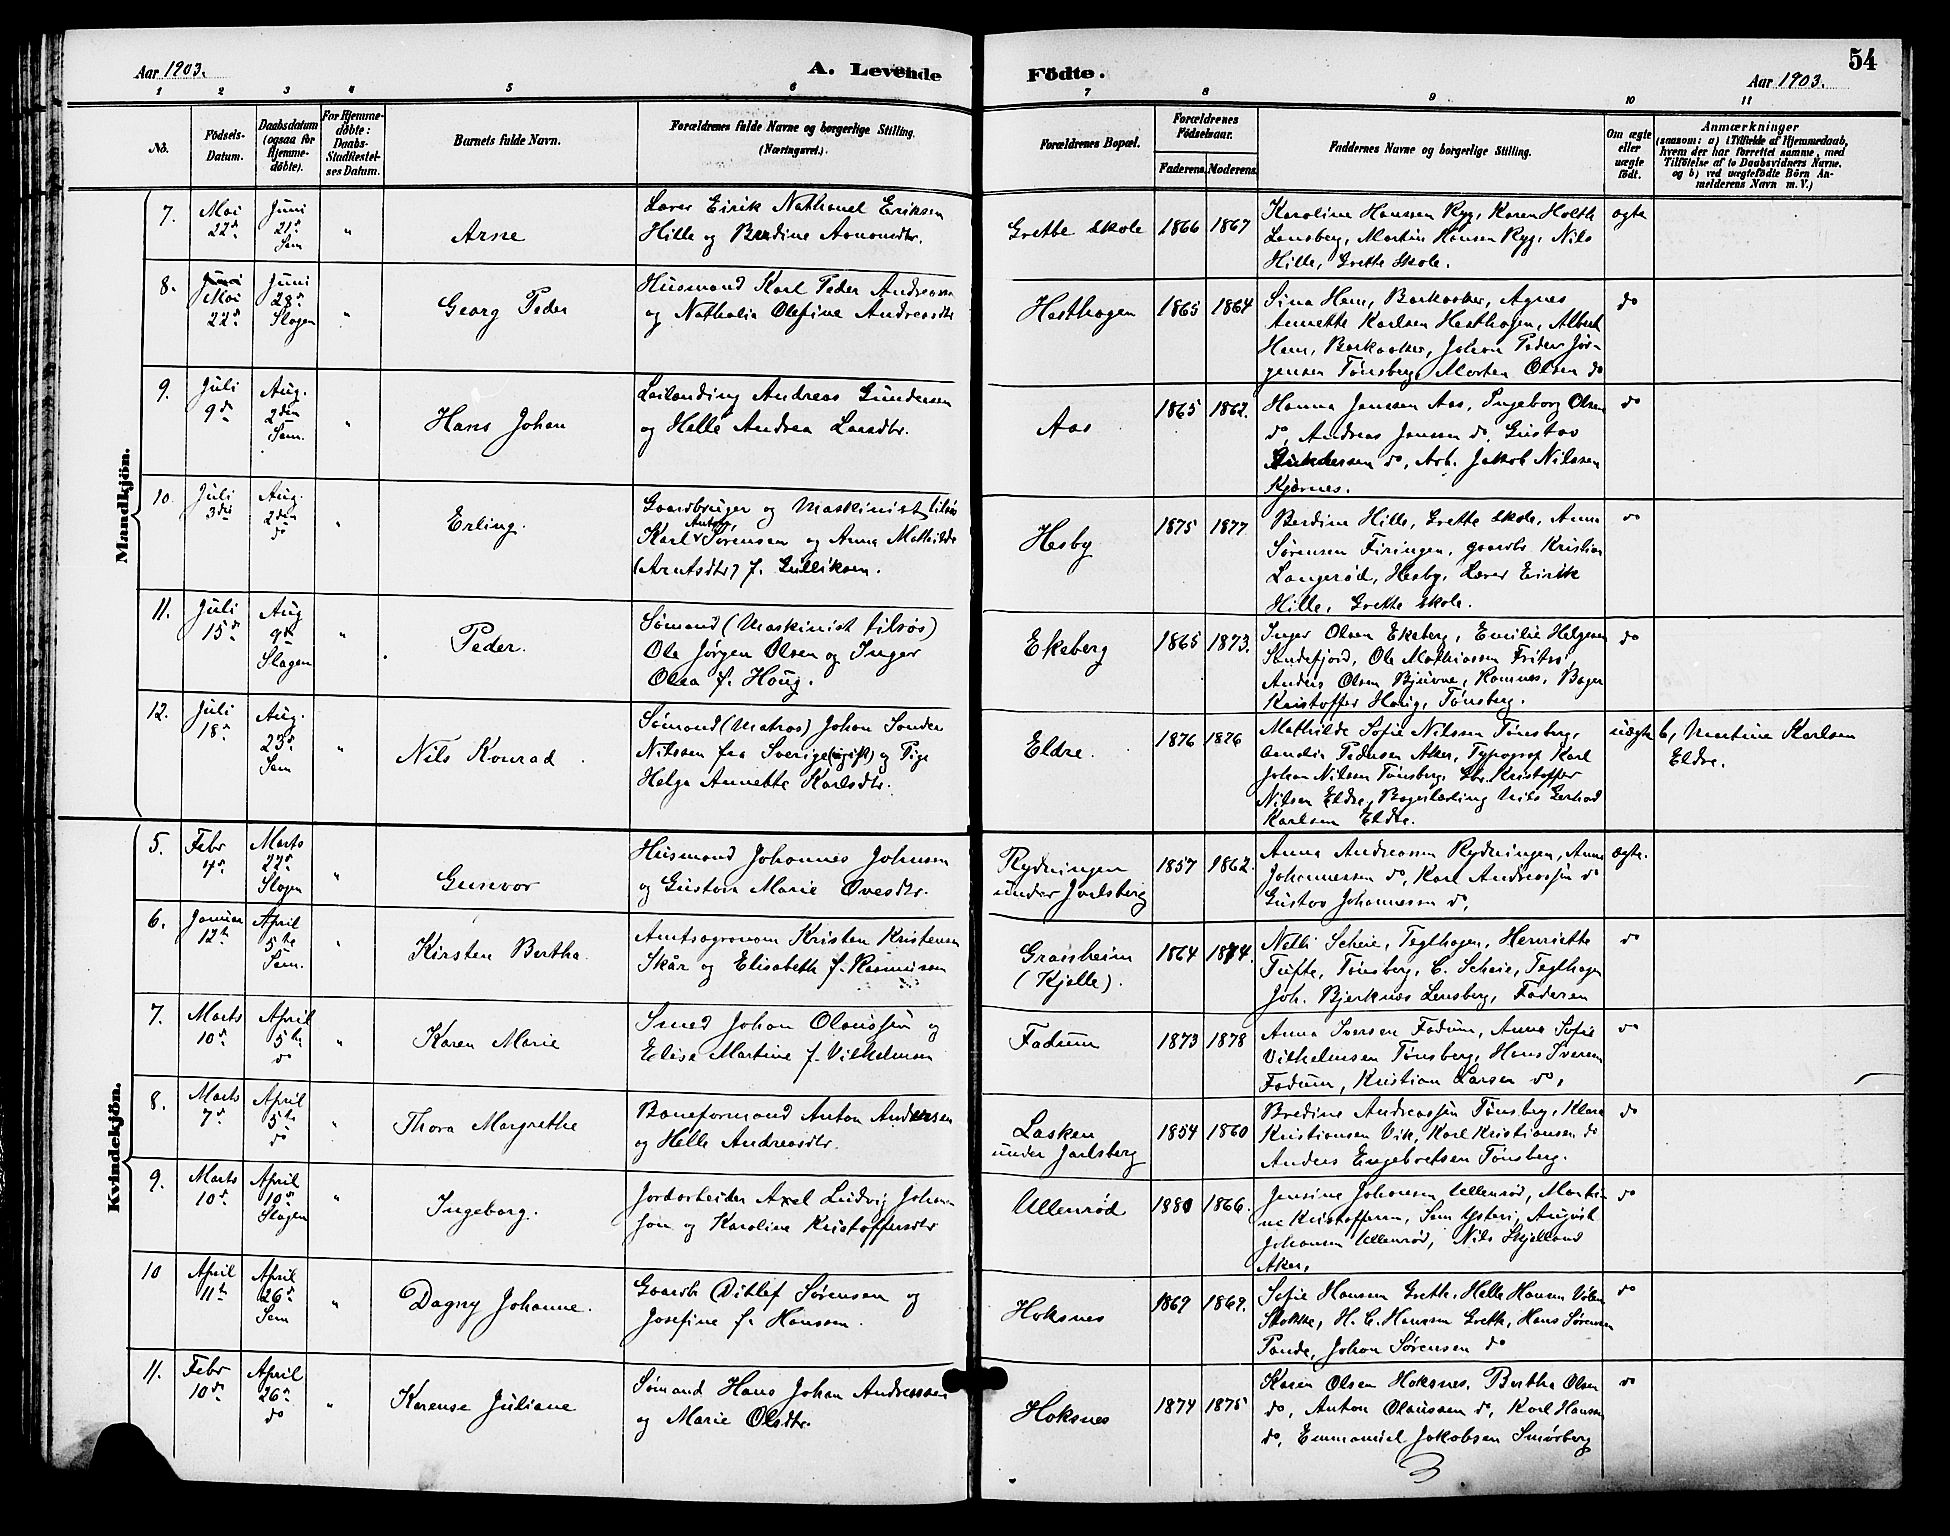 Aar 1903.
A. Levende
Födte.
54
Aar 1903.
1 2 3 4 5 6 7 8 9 10 11
No.
Födsels-Datum.
Daabsdatum (ogsaa for Hjemme-döbte).
For Hjemme-döbte: Daabs-Stadfæstel-ses Datum.
Barnets fulde Navn.
Forældrenes fulde Navne og borgerlige Stilling.
(Næringsvei.)
Forældrenes Bopæl.
Forældrenes Födselsaar.
Faderens. Moderens.
Faddernes Navne og borgerlige Stilling.
Om ægte eller uægte födt.
Anmærkninger
(saasom: a) i Tilfælde af Hjemmedaab,
hvem der har forrettet samme, med
Tilföielse af to Daabsvidners Navne,
og b) ved uægtefödte Börn An-
melderens Navn m. V.)
Mandkjön.
7. Mai 22d Juni 21d Sem " Arne
Lærer Eirik Nathanael Eriksen
Hille og Berdine
Grette skole 1866 1867
Karoline Hanssen Ryg, Karen Holth
Lensberg, Martin Hansen Ryg, Nils
Hille, Grette Skole.
ægte
8. Mai 22d Juni 28d Slagen " Georg Peder
Husmand Karl Peder Andreassen
og Nathalia Olefine Andreasdtr
Hesthagen 1865 1864
Sina Hem, Barkaaker, Agnes
Annette Karlsen Hesthagen, Albert
Hem, Barkaaker, Johan Peder Jør-
gensen Tønsberg, Morten Olsen do
do
9. Juli 9de Aug. 2den Sem. " Hans Johan
Leilænding Andreas Gundersen
og Helle Andrea Larsdtr.
Aas 1865 1862.
Hanna Jenssen Aas, Ingeborg Olsen
do, Andreas Jensen do, Gustav
Gundersen do, Arb. Jakob Nilssen
Kjærnes.
do
10. Juli 3die Aug. 2den do " Erling.
Gaardbruger og Maskinist tilsøs
Karl Anton Sørensen og Anna Mathilde
(Arntsdtr) f. Gulliksen.
Hesby 1875 1877
Berdine Hille, Grette skole, Anna
Sørensen Firingen, gaardbr Kristian
Langerød, Hesby, Lærer Eirik
Hille, Grette skole.
do
11. Juli 15de Aug 9de Slagen " Peder.
Sømand (Maskinist tilsøs)
Ole Jørgen Olsen og Inger
Olea f. Houg.
Ekeberg 1865 1873.
Inger Olsen Ekeberg, Emilie Helgesen
Sandefjord, Ole Mathiassen
Anders Olsen Ramnes, Bager
Kristoffer Haug, Tønsberg.
do
12. Juli 18de Aug. 23d Sem " Nils Konrad
Sømand (Matros) Johan Sander
Nilssen fra Sverige (ugift) og Pige
Helga Annette Karlsdtr.
Eldre. 1876 1876
Mathilde Sofie Nilssen Tønsberg,
Amalia Pedersen Aker, Typograf Karl
Johan Nilsen Tønsberg, Gbr. Kristoffer
Nilsen Eldre, Bagerlærling Nils Gerhard
Karlsen Eldre.
uægte b, Martine Karlsen
Eldre.
Kvindekjön.
5. Febr 4de Marts 22d Slagen " Gunvor
Husmand Johannes Johnsen
og Gustava Marie Ovesdtr.
Rydningen
under Jarlsberg 1857 1862.
Anna Andreassen Rydningen, Anna
Johannessen do, Karl Andreassen do
Gustav Johannessen do,
ægte.
6. Januar 12te April 5te Sem. " Kirsten Bertha.
Amtsagronom Kristen Kristensen
Skår og Elisabeth f. Rasmussen
(Kjelle). 1864 1874.
Nelli Scheie, Teglhagen, Henriette
Tufte, Tønsberg, C. Scheie, Teglhagen
Joh. Bjerknæs Lensberg, Faderen
do
7. Marts 10de April 5te do " Karen Marie
Smed Johan Olaussen og
Elise Martine f. Vilhelmsen
Fadum 1873 1878
Anna Iversen Fadum, Anna Sofie
Vilhelmsen Tønsberg, Hans Iversen
Fadum, Kristian Larsen do,
do
8. Marts 7de April 5te do " Thora Margrethe
Baneformand Anton Andersen
og Helle Andreasdtr.
Lasken
under Jarlsberg 1854 1860
Bredine Andreassen Tønsberg, Klara
Kristiansen Vik, Karl Kristiansen do
Anders Engebretsen Tønsberg.
do
9. Marts 10de April 10de Slagen " Ingeborg.
Jordarbeider Axel Ludvig Johans-
son og Karoline Kristoffersdtr
Ullenrød 1880 1866.
Jensine Johansen Ullenrød, Marti-
ne Kristoffersen, Sem Ysteri, August
Johansen Ullenrød, Nils Skjelland
Aker,
do
10 April 11te April 26de Sem " Dagny Johanne.
Gaardb. Ditlef Sørensen og
Josefine f. Hanssen.
Hoksnes 1869 1869.
Sofie Hansen Grette, Helle Hansen
Stokke, H. C. Hanssen Grette, Hans Sørensen
Pande, Johan Sørensen do
do
11. Febr 10de April 26de do " Karense Juliane
Sømand Hans Johan Andreassen
og Marie Olsdtr.
Hoksnes 1874 1875
Karen Olsen Hoksnes, Bertha Olsen
do, Anton Olaussen do, Karl Hansen
do, Emmanuel Jakobsen Smørberg
do